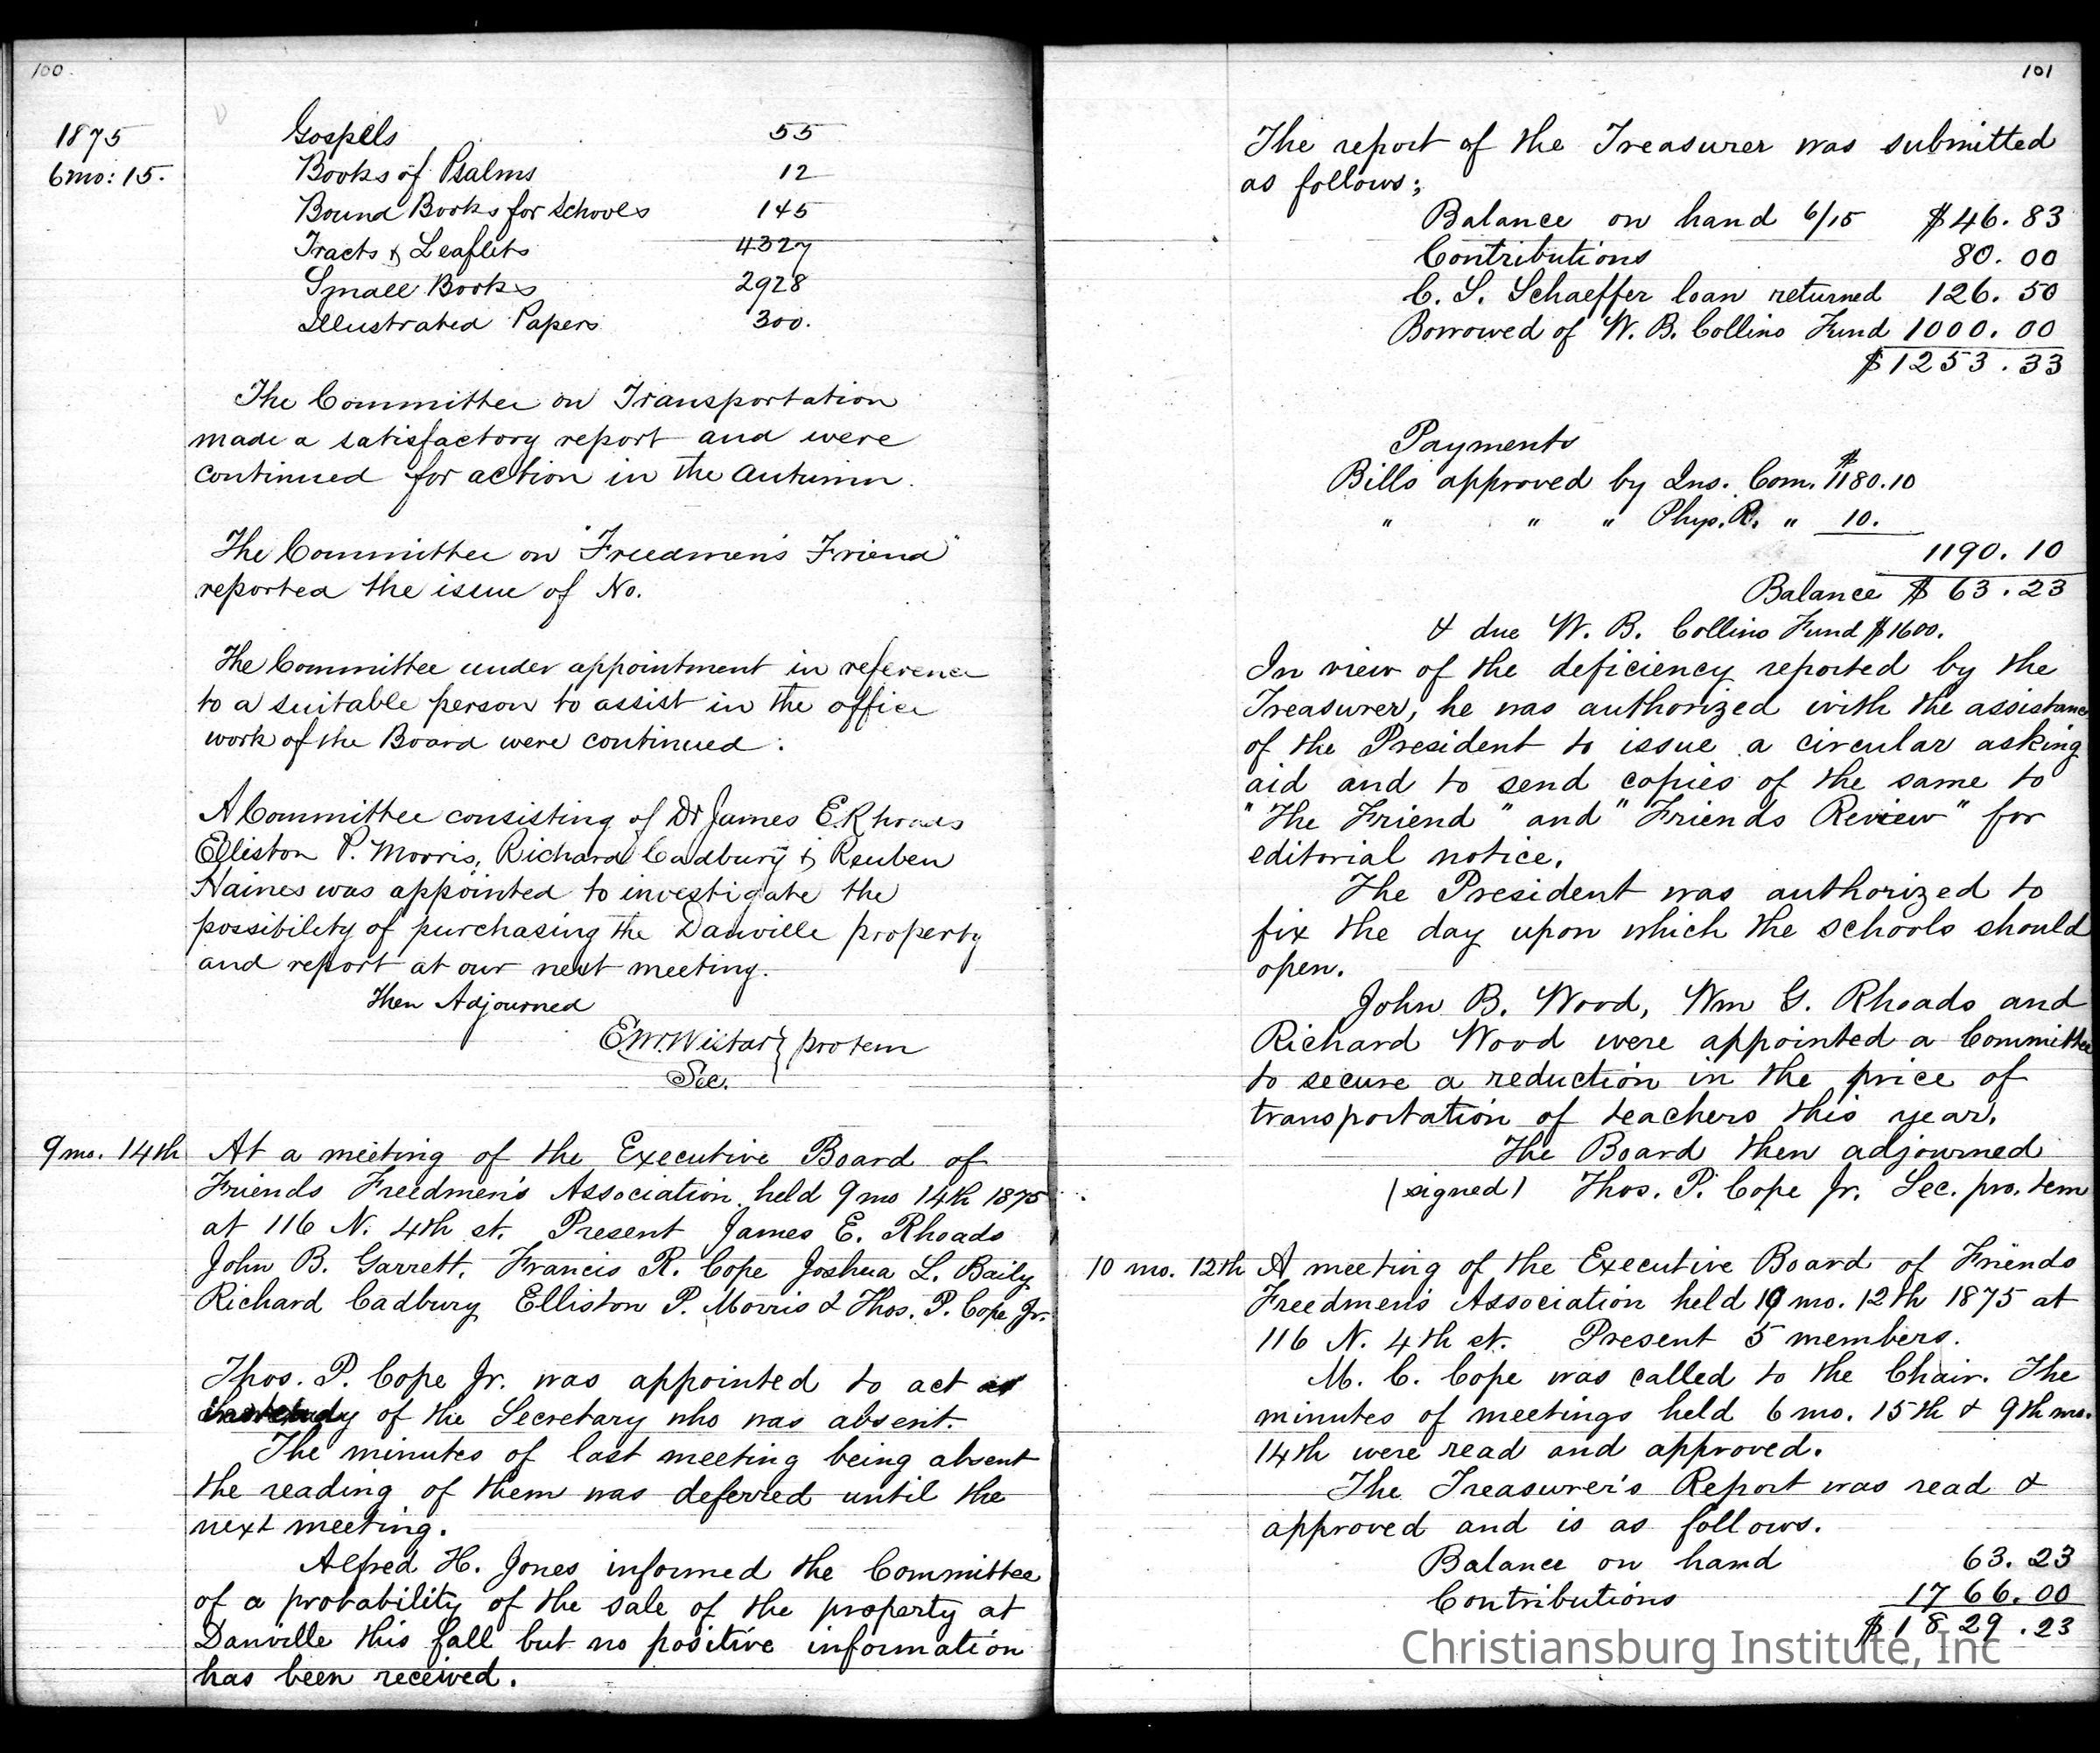 100.
1875
6 mo: 15.
Gospels 55
Books of Psalms 12
Bound Books for Schools 145
Tracts & Leaflets 4327
Small Books 2928
Illustrated Papers 300.
The Committee on Transportation
made a satisfactory report and were
continued for action in the Autumn.
The Committee on "Freedmen's Friend"
reported the issue of No.
The Committee under appointment in reference
to a suitable person to assist in the office
work of the Board were continued.
A Committee consisting of Dr James E. Rhoads
Elliston P. Morris, Richard Cadbury & Reuben
Haines was appointed to investigate the
possibility of purchasing the Danville property
and report at our next meeting.
Then Adjourned
E.M. Wistar } protem
Sec.
9 mo. 14th At a meeting of the Executive Board of
Friends Freedmen's Association held 9 mo 14th 1875
at 116 N. 4th st. Present James E. Rhoads
John B. Garrett, Francis R. Cope Joshua L. Baily
Richard Cadbury Elliston P. Morris & Thos. P. Cope Jr.
Thos. P. Cope Jr. was appointed to act
of the Secretary who was absent.
The minutes of last meeting being absent
the reading of them was deferred until the
next meeting.
Alfred H. Jones informed the Committee
of a probability of the sale of the property at
Danville this fall but no positive information
has been received.
101
The report of the Treasurer was submitted
as follows;
Balance on hand 6/15 $46.83
Contributions 80.00
C. S. Schaeffer loan returned 126.50
Borrowed of W. B. Collins Fund 1000.00
$1253.33
Payments
Bills approved by Ins. Com. $1180.10
" " " Phys. R. " 10.
1190.10
Balance $63.23
& due W. B. Collins Fund $1600.
In view of the deficiency reported by the
Treasurer, he was authorized with the assistance
of the President to issue a circular asking
aid and to send copies of the same to
"The Friend" and "Friends Review" for
editorial notice.
The President was authorized to
fix the day upon which the schools should
open.
John B. Wood, Wm G. Rhoads and
Richard Wood were appointed a Committee
to secure a reduction in the price of
transportation of teachers this year.
The Board then adjourned
(signed) Thos. P. Cope Jr. Sec. pro. tem
10 mo. 12th A meeting of the Executive Board of Friends
Freedmen's Association held 10 mo. 12th 1875 at
116 N. 4th st. Present 5 members.
M. C. Cope was called to the Chair. The
minutes of meetings held 6 mo. 15th & 9th mo.
14th were read and approved.
The Treasurer's Report was read &
approved and is as follows.
Balance on hand 63.23
Contributions 1766.00
$1829.23
Christiansburg Institute, Inc